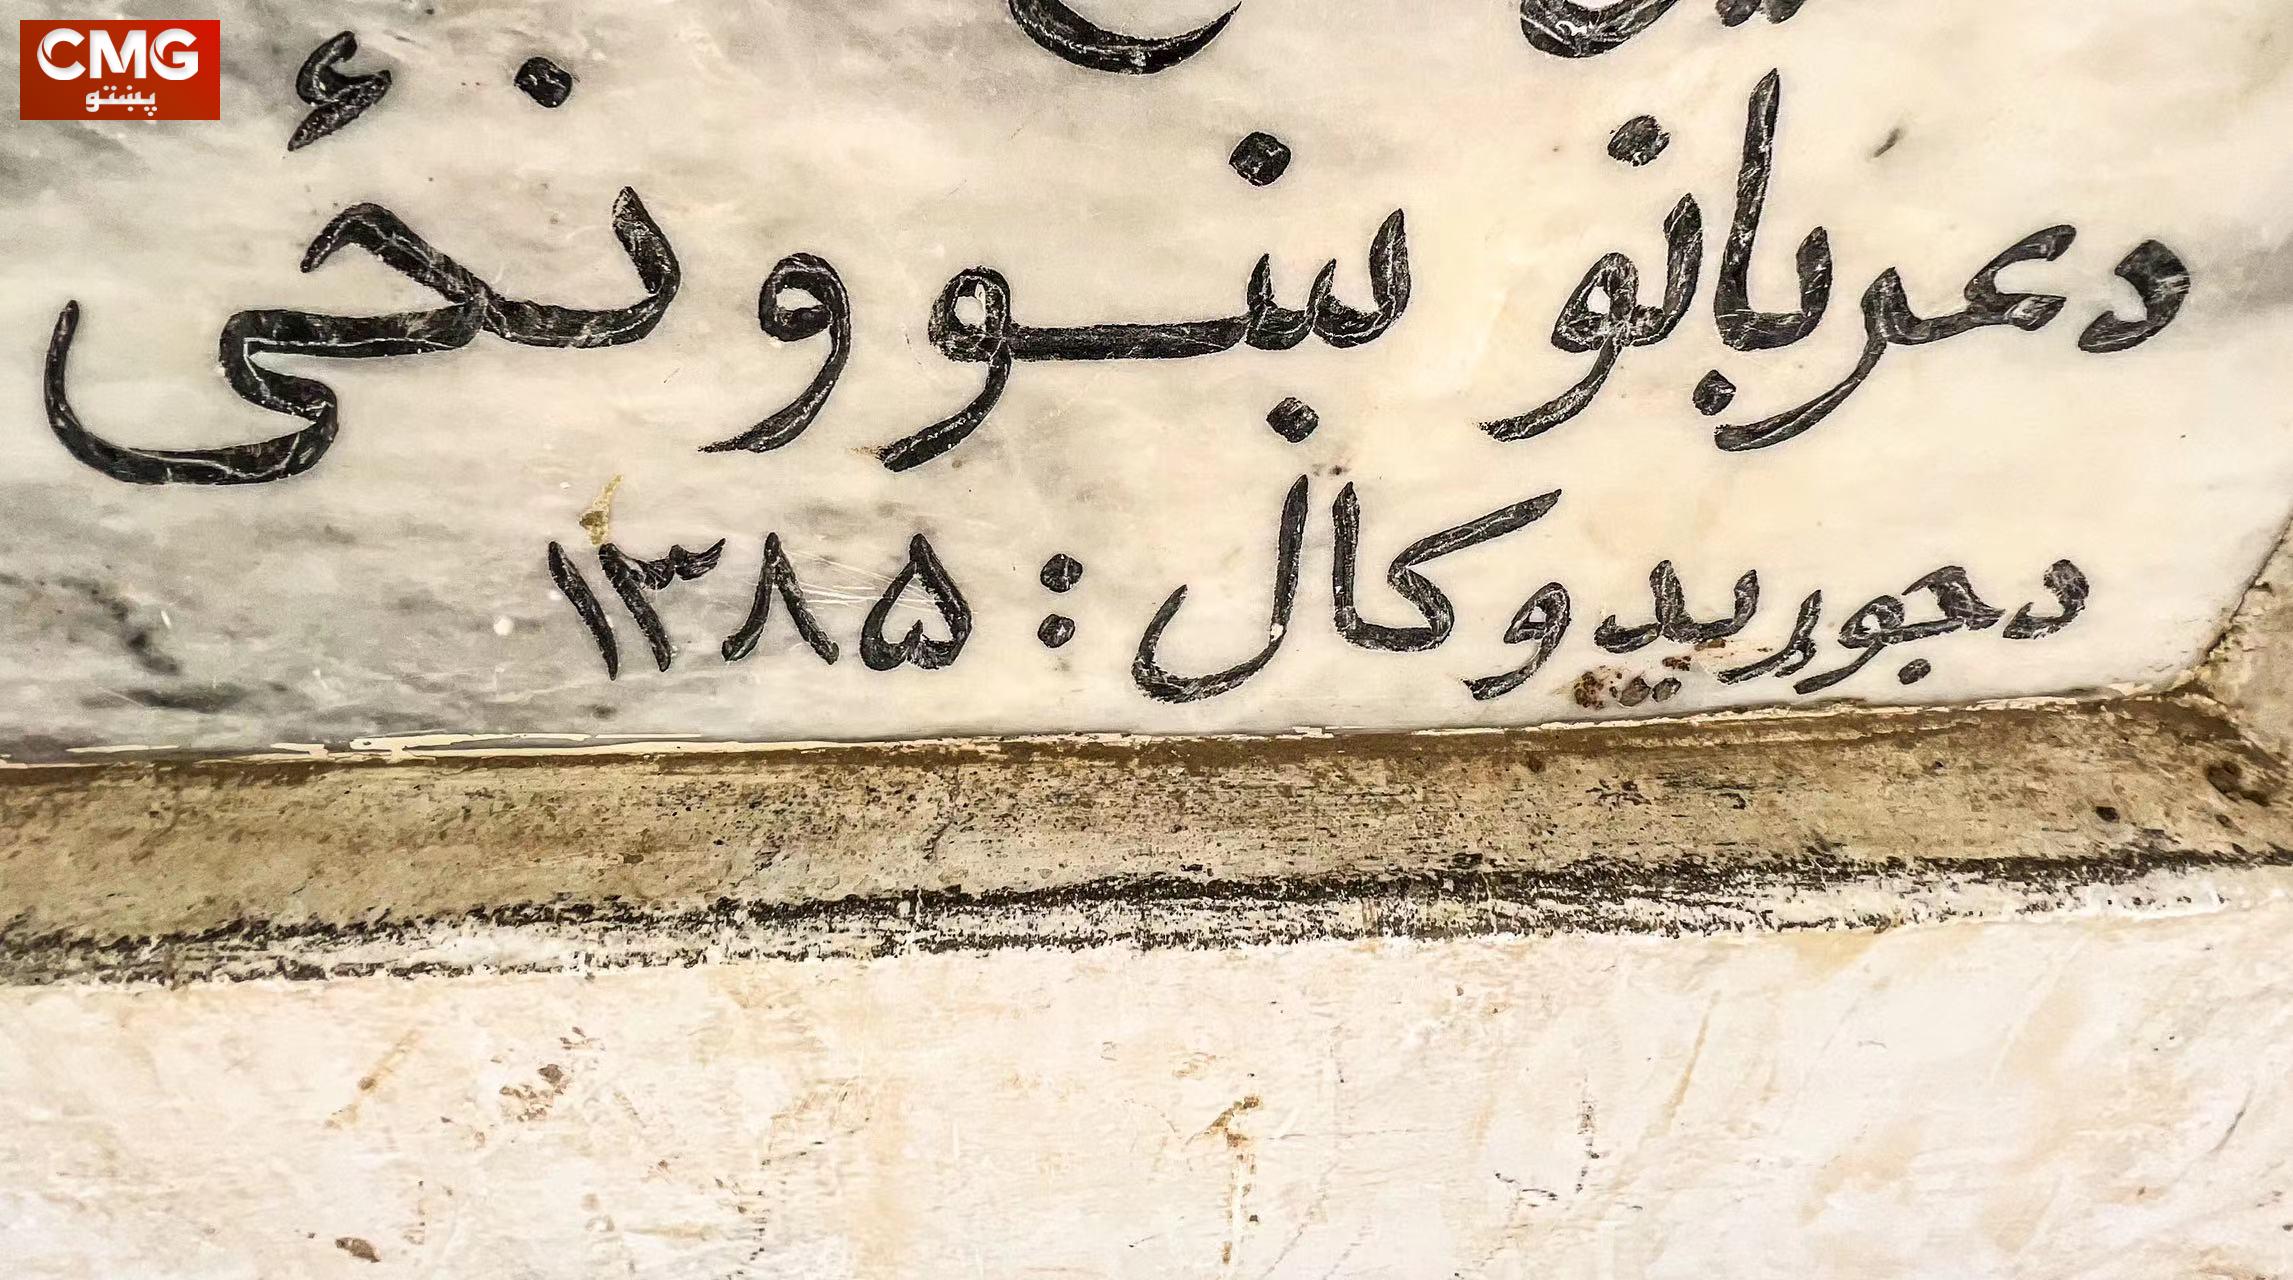 CMG
پښتو
د عربانو ښوونځی
د جوړیدو کال : ۱۳۸۵